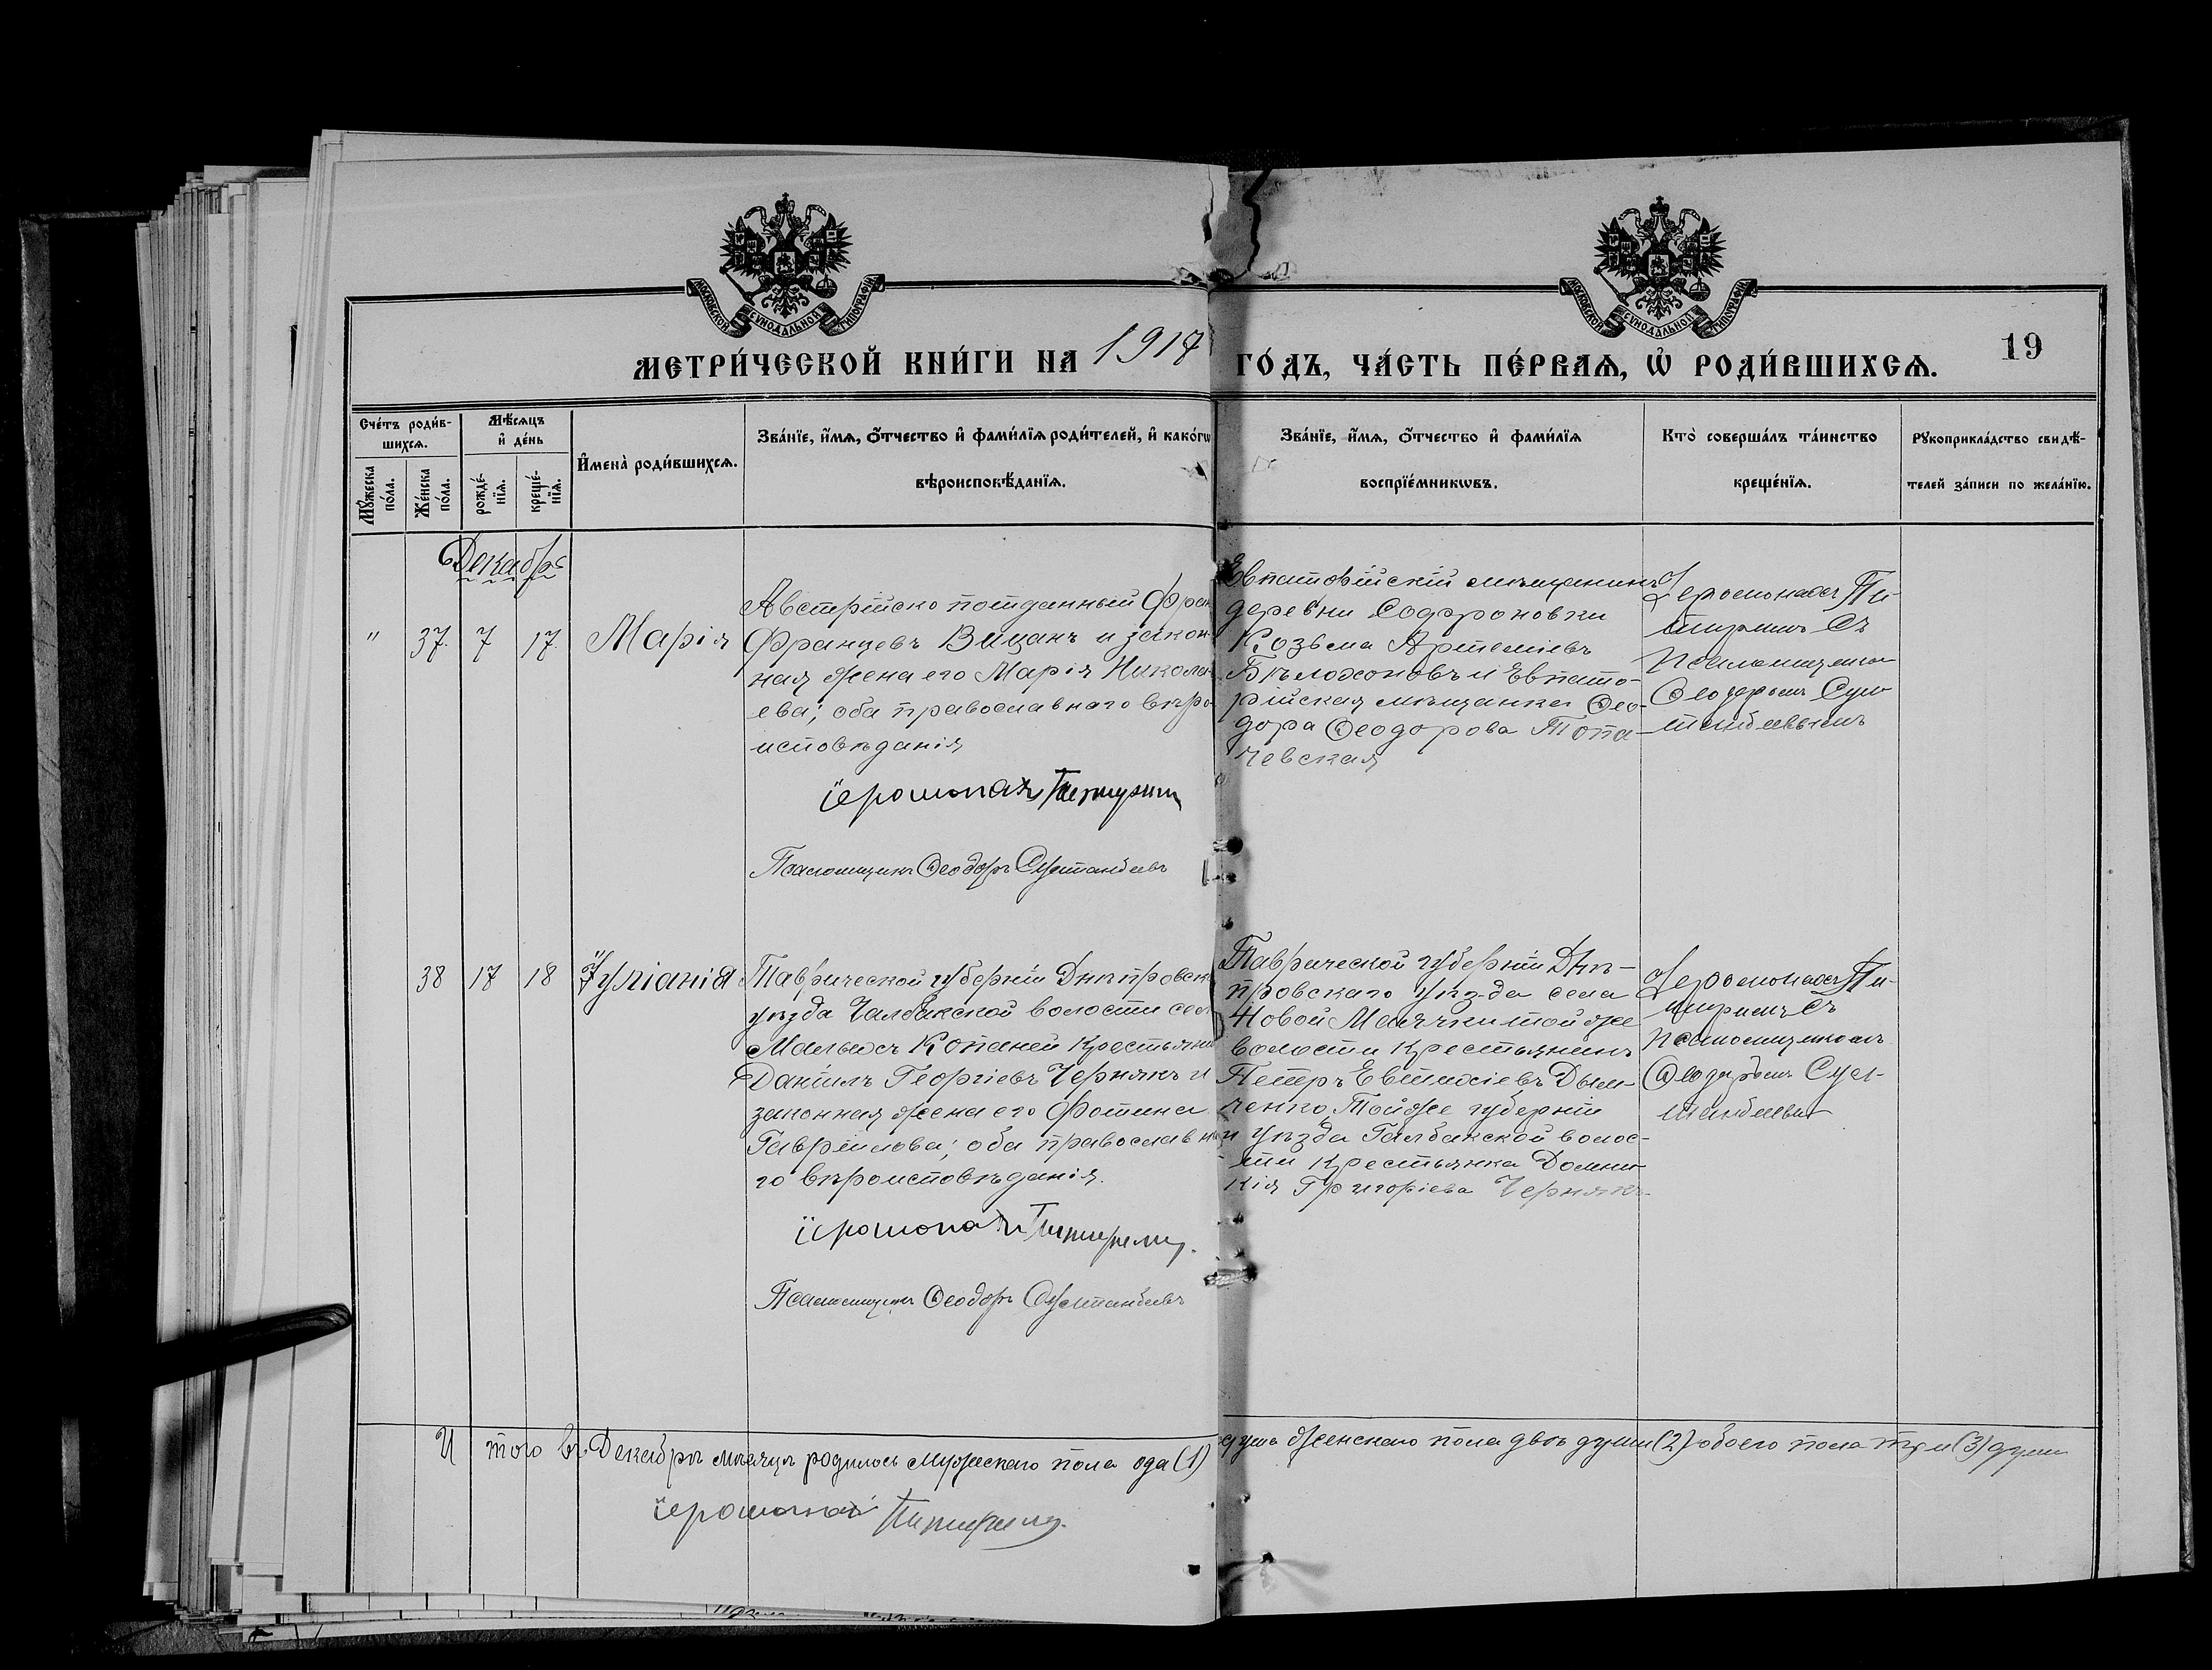 МОСКОВСКОЙ СѴНОДАЛЬНОЙ ТИПОГРАФІИ
МОСКОВСКОЙ СѴНОДАЛЬНОЙ ТИПОГРАФІИ
МЕТРИ́ЧЕСКОЙ КНИ́ГИ НА 1917 ГО́ДЪ, ЧА́СТЬ ПЕ́РВАѦ, Ѡ҆ РОДИ́ВШИХСѦ.
19
Сче́тъ роди́в-
шихсѧ.
Мꙋ́жеска по́ла.
Же́нска по́ла.
Мѣ́сѧцъ
и҆ де́нь
рожде́-
нїѧ.
креще́-
нїѧ.
И҆мена̀ роди́вшихсѧ.
Зва́нїе, и҆́мѧ, ѻ҆́тчество и҆ фами́лїѧ роди́телей, и҆ како́гѡ
вѣроисповѣ́данїѧ.
Зва́нїе, и҆́мѧ, ѻ҆́тчество и҆ фами́лїѧ
воспрїе́мникѡвъ.
Кто̀ соверша́лъ та́инство
креще́нїѧ.
Рꙋкоприкла́дство свидѣ́-
телей за́писи по жела́нїю.
Декабрь
" 37. 7 17. Марія
Австрійско подданный Фран
Францевъ Вицанъ и закон-
ная жена его Марія Никола-
ева; оба православнаго вѣро-
исповѣданія
Іеромонахъ Питиримъ
Псаломщикъ Ѳеодоръ Султанбеевъ
Евпаторійскій мѣщанинъ
деревни Софроновки
Козьма Артеміевъ
Бѣложоновъ и Евпато-
рійская мѣщанка Ѳео-
дора Ѳеодорова Топа-
чевская
Іеромонахъ Пи-
тиримъ съ
псаломщикомъ
Ѳеодоромъ Сул-
танбеевымъ
38 17 18 Іуліанія
Таврической губерніи Днѣпровск
уѣзда Чалбакской волости села
Малыхъ Копаней крестьянинъ
Даніилъ Георгіевъ Чернякъ и
законная жена его Фотина
Гавріилова; оба православна-
го вѣроисповѣданія.
Іеромонахъ Питиримъ.
Псаломщикъ Ѳеодоръ Султанбеевъ
Таврической губерніи Днѣ-
провскаго уѣзда села
Новой Маячки той же
волости крестьянинъ
Петръ Евтихіевъ Дым-
ченко, Той же губерніи
и уѣзда Чалбакской волос-
ти крестьянка Домни-
кія Григоріева Чернякъ
Іеромонахъ Пи-
тиримъ съ
псаломщикомъ
Ѳеодоромъ Сул-
танбеевым
И того въ Декабрѣ мѣсяцѣ родилось мужескаго пола одa (1) душа женскаго пола двѣ души (2) обоего пола три (3) души
Іеромонахъ Питиримъ.